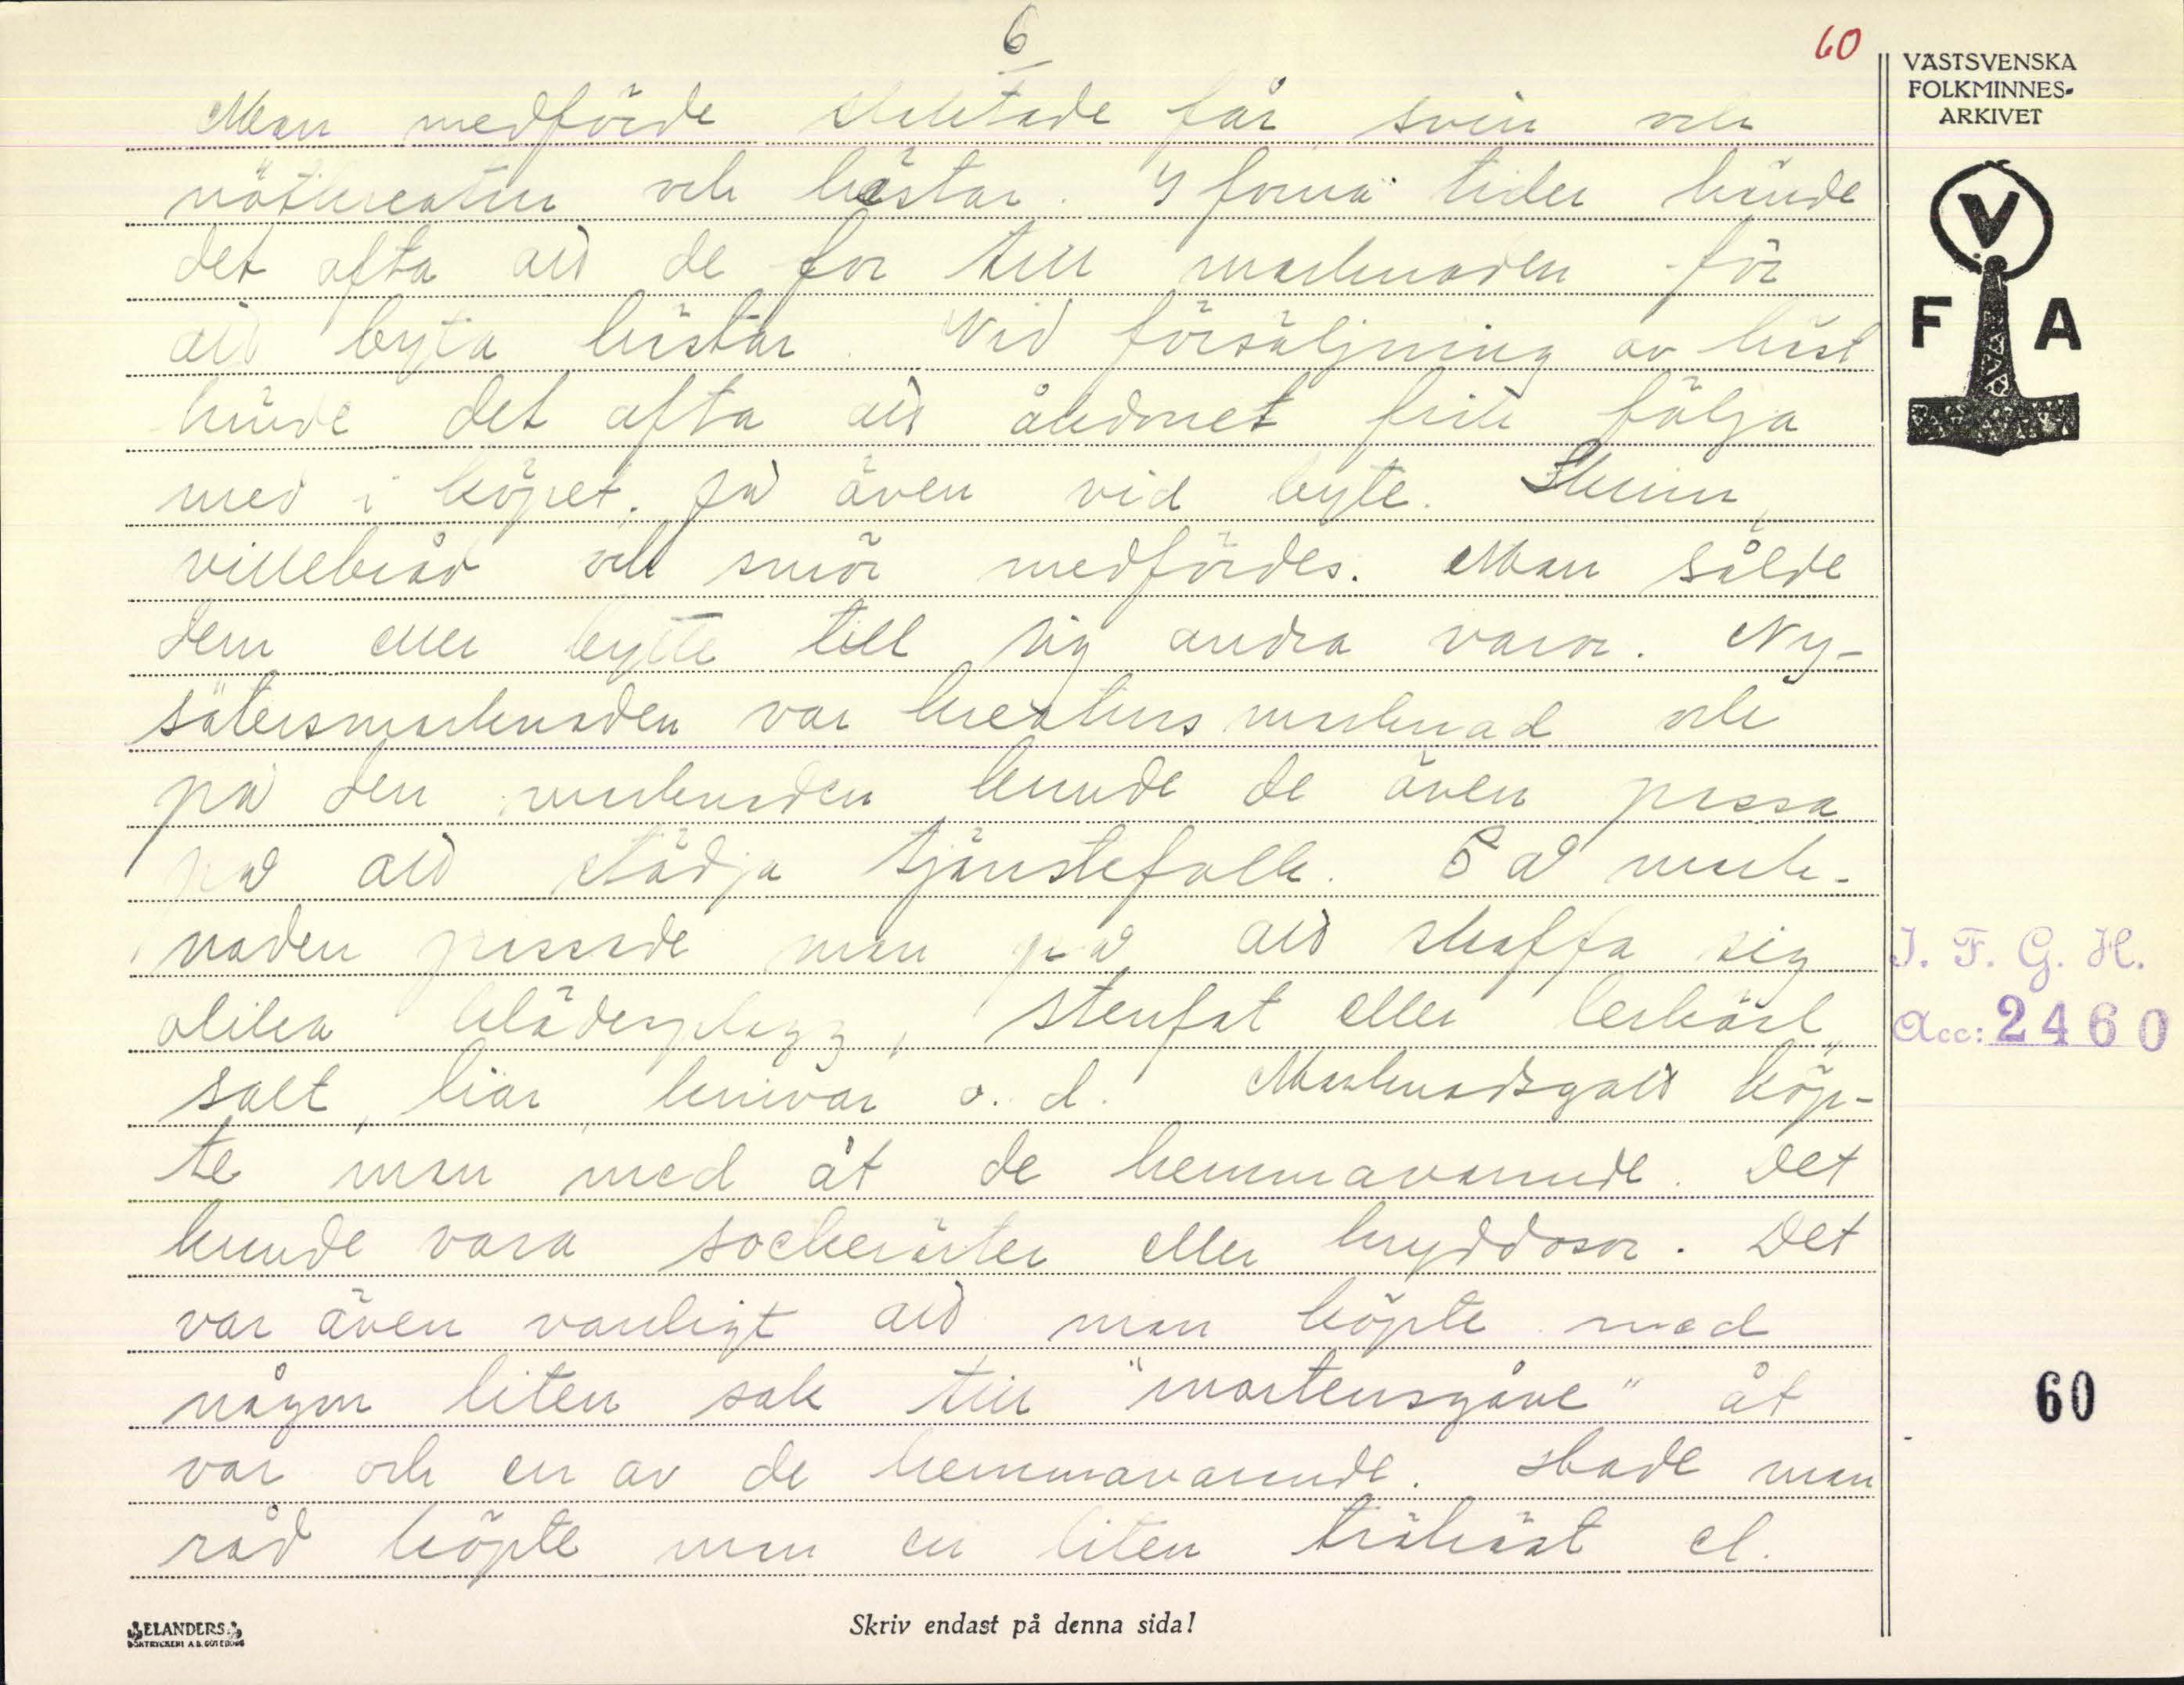 6
60
VÄSTSVENSKA
FOLKMINNES-
ARKIVET
V
F A
Man medförde slaktade får svin och
nötkreatur och hästar. I forna tider hände
det ofta att de for till marknaden för
att byta hästar. Vid försäljning av häst
hände det ofta att åkdonet fick följa
med i köpet, så även vid byte. Skinn,
villebråd och smör medfördes. Man sålde
dem eller bytte till sig andra varor. Ny-
sätersmarknaden var kreatursmarknad och
på den marknaden kunde de även passa
på att städja tjänstefolk. På mark-
naden passade man på att skaffa sig
olika klädesplagg, stenfat eller lerkärl,
salt, liar, knivar o. d. Marknadsgott köp-
te man med åt de hemmavarande. Det
kunde vara sockerärter eller kryddosor. Det
var även vanligt att man köpte med
någon liten sak till "martensgåve" åt
var och en av de hemmavarande. Hade man
råd köpte man en liten trähäst el.
I. F. G. H.
Acc: 2460
60
ELANDERS
BOKTRYCKERI A.B. GÖTEBORG
Skriv endast på denna sida!